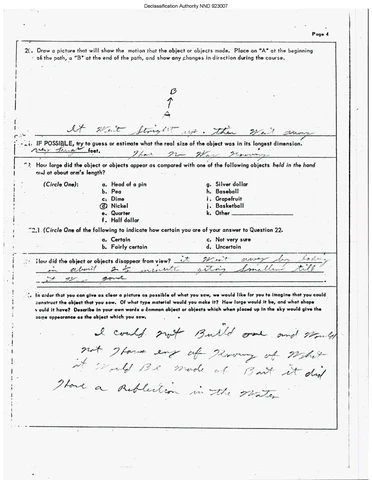 Declassification Authority NND 923007
Page 4
Draw a picture that will show the motion that the object or objects made. Place an "A" at the beginning
of the path, a "B" at the end of the path, and show any changes in direction during the course.
B
↑
A
It Went Straight up. then Went away
IF POSSIBLE, try to guess or estimate what the real size of the object was in its longest dimension.
feet. I have No Way Knowing
How large did the object or objects appear as compared with one of the following objects held in the hand
and at about arm's length?
(Circle One): a. Head of a pin g. Silver dollar
b. Pea h. Baseball
c. Dime i. Grapefruit
d. Nickel j. Basketball
e. Quarter k. Other
f. Half dollar
22.1 (Circle One of the following to indicate how certain you are of your answer to Question 22.
a. Certain c. Not very sure
b. Fairly certain d. Uncertain
How did the object or objects disappear from view? it Went away by
in about 2½ Smaller till
it was gone
In order that you can give as clear a picture as possible of what you saw, we would like for you to imagine that you could
construct the object that you saw. Of what type material would you make it? How large would it be, and what shape
would it have? Describe in your own words a common object or objects which when placed up in the sky would give the
same appearance as the object which you saw.
I could not Build one and Would
not Have any of Knowing of What
it Would Be made of But it did
Have a Reflection in the Water